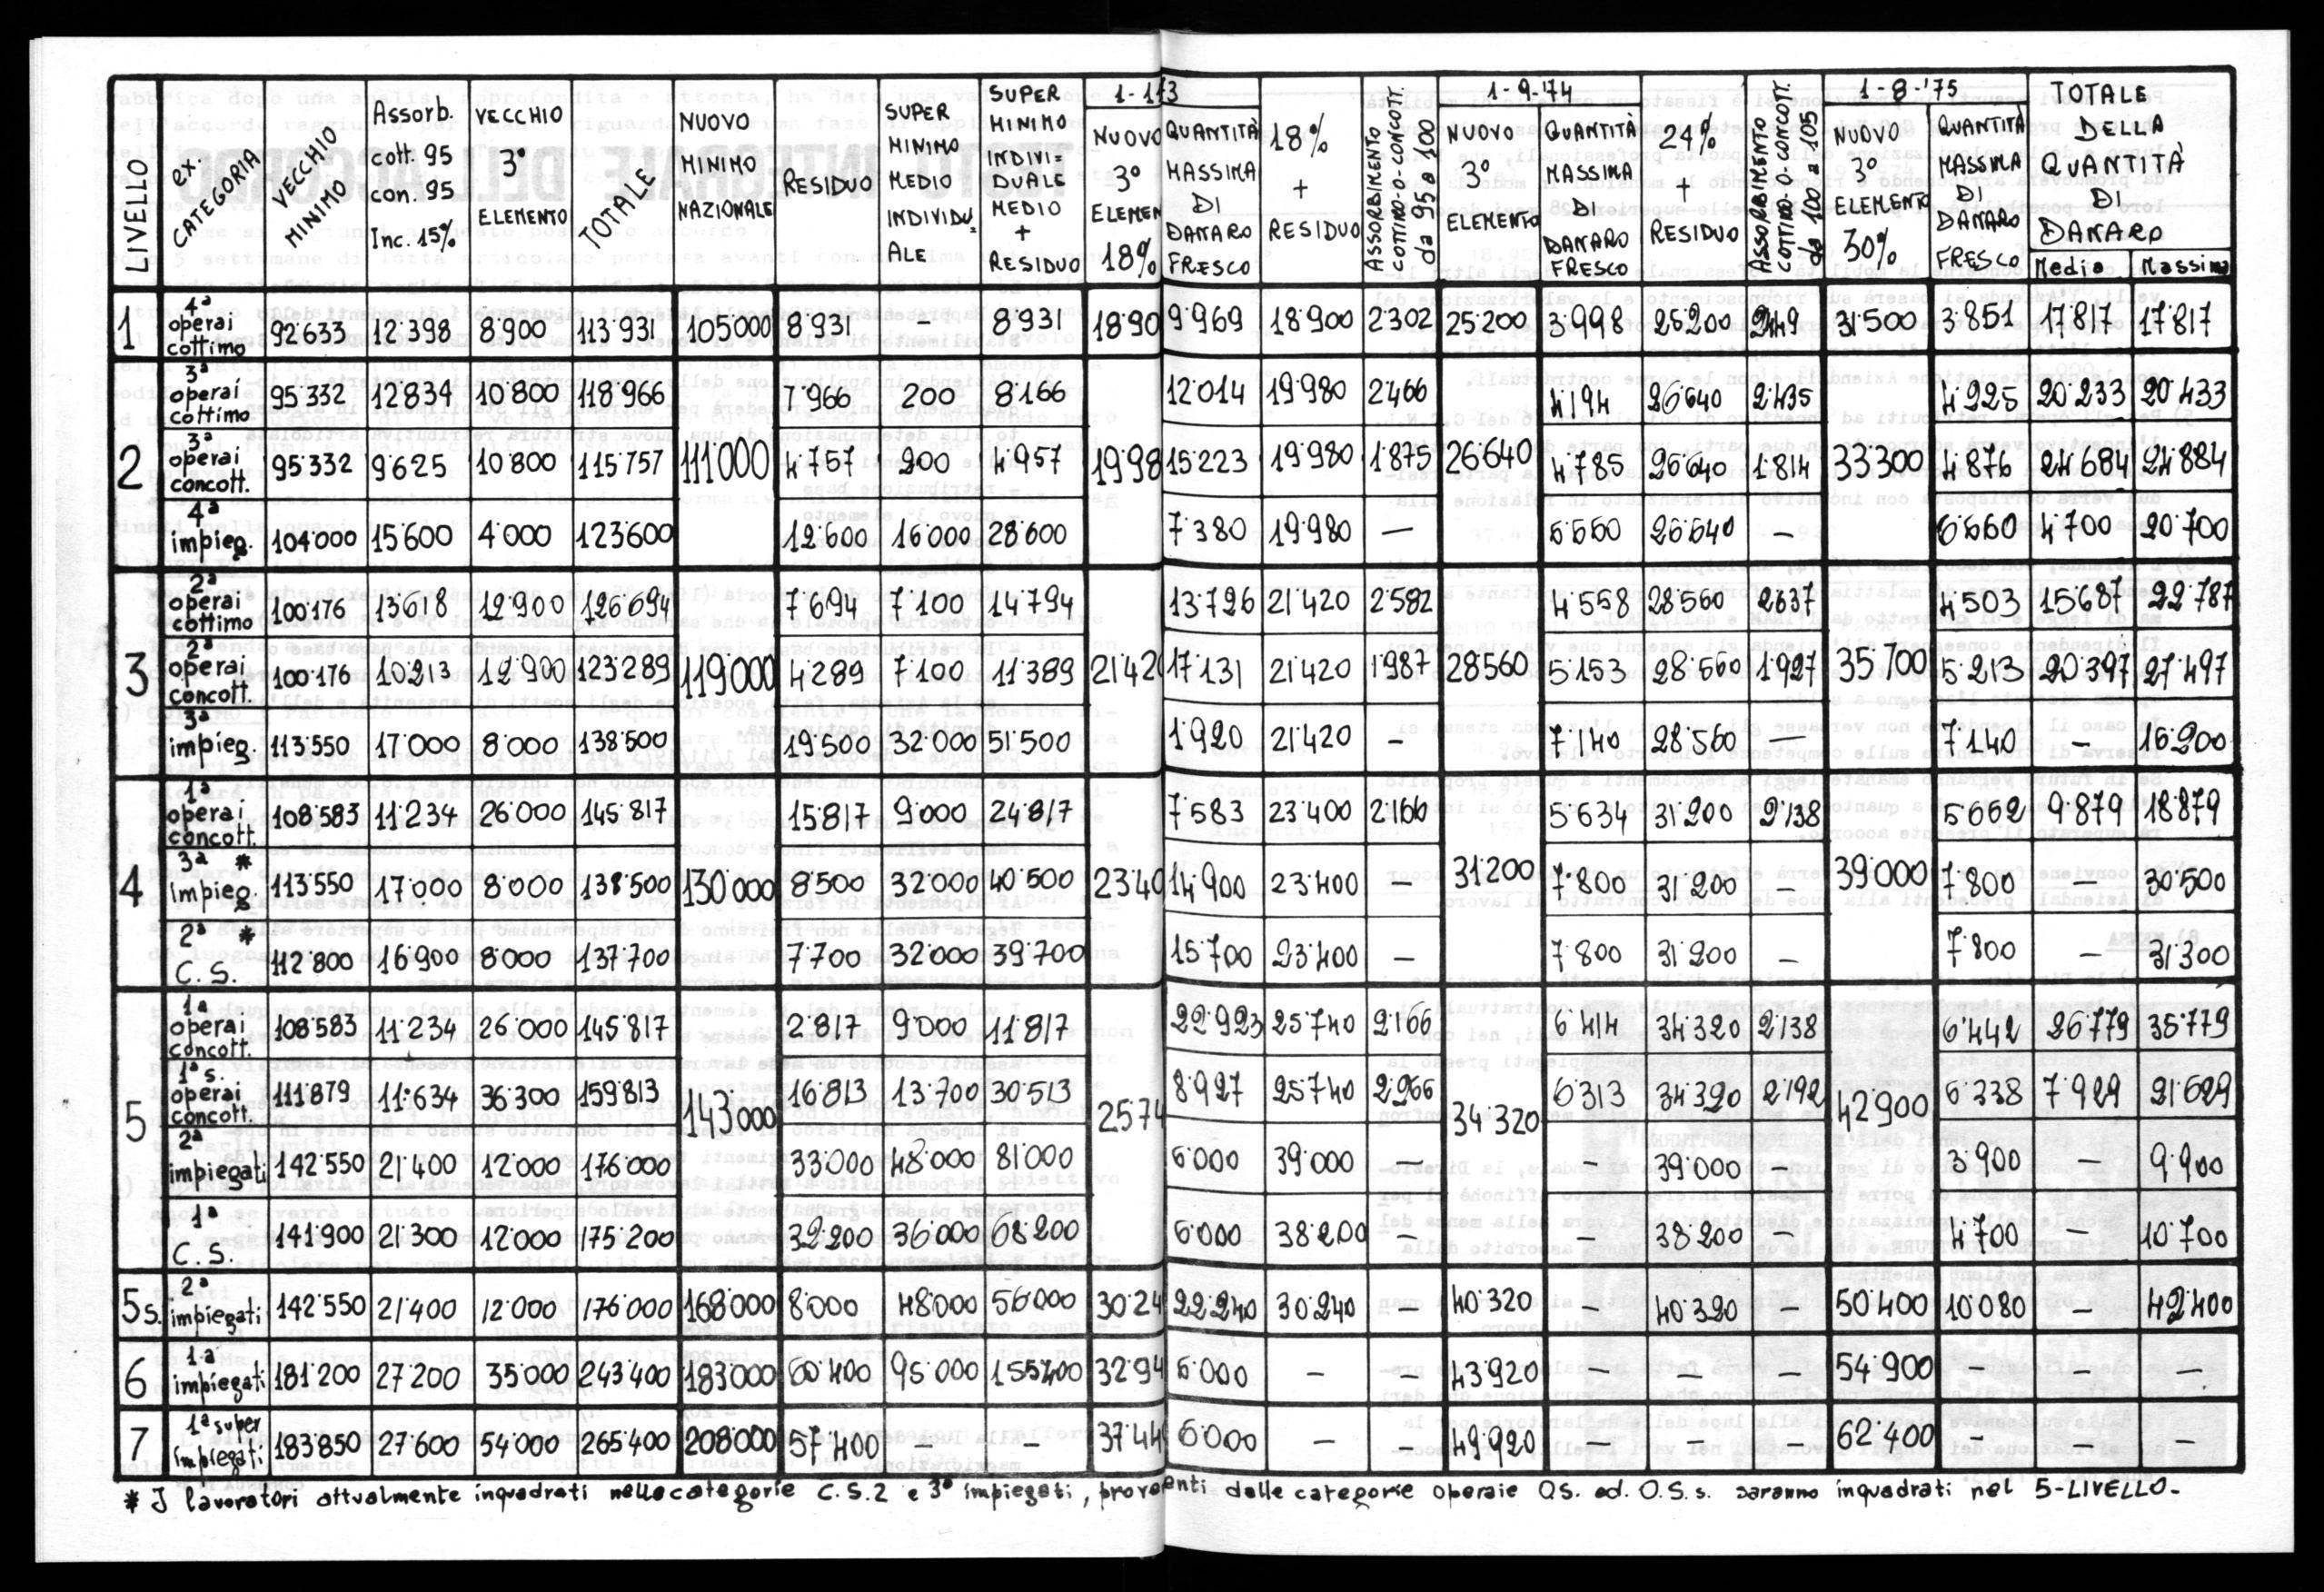 LIVELLO
ex. CATEGORIA
VECCHIO MINIMO
Assorb. cott. 95 con. 95 Inc. 15%
VECCHIO 3° ELEMENTO
TOTALE
NUOVO MINIMO NAZIONALE
RESIDUO
SUPER MINIMO MEDIO INDIVIDUALE
SUPER MINIMO INDIVIDUALE MEDIO + RESIDUO
NUOVO 3° ELEMEN 18%
QUANTITÀ MASSIMA DI DANARO FRESCO
18% + RESIDUO
ASSORBIMENTO COTTIMO-CONCOTT. da 95 a 100
1-9-'74
NUOVO 3° ELEMENTO
QUANTITÀ MASSIMA DI DANARO FRESCO
24% + RESIDUO
ASSORBIMENTO COTTIMO-CONCOTT. da 100 a 105
1-8-'75
NUOVO 3° ELEMENTO 30%
QUANTITÀ MASSIMA DI DANARO FRESCO
TOTALE DELLA QUANTITÀ DI DANARO
Media Massima
1 4ª operai cottimo 92'633 12'398 8'900 113'931 105'000 8'931 – 8'931 18'90 9'969 18'900 2'302 25'200 3'998 25'200 2'249 31'500 3'851 17'817 17'817
2 3ª operai cottimo 95'332 12'834 10'800 118'966 7'966 200 8'166 12'014 19'980 2'466 4'194 26'640 2'435 4'925 20'233 20'433
3ª operai concott. 95'332 9'625 10'800 115'757 111'000 4'757 200 4'957 19'98 15'223 19'980 1'875 26'640 4'785 26'640 1'814 33'300 4'876 24'684 24'884
4ª impieg. 104'000 15'600 4'000 123'600 12'600 16'000 28'600 7'380 19'980 – 6'660 26'640 – 6'660 4'700 20'700
3 2ª operai cottimo 100'176 13'618 12'900 126'694 7'694 7'100 14'794 13'726 21'420 2'582 4'558 28'560 2'637 4'503 15'687 22'787
2ª operai concott. 100'176 10'213 12'900 123'289 119'000 4'289 7'100 11'389 21'420 17'131 21'420 1'987 28'560 5'153 28'560 1'927 35'700 5'213 20'397 27'497
3ª impieg. 113'550 17'000 8'000 138'500 19'500 32'000 51'500 1'920 21'420 – 7'140 28'560 – 7'140 – 16'200
4 1ª operai concott 108'583 11'234 26'000 145'817 15'817 9'000 24'817 7'583 23'400 2'166 5'634 31'200 2'138 5'662 9'879 18'879
3ª * Impieg. 113'550 17'000 8'000 138'500 130'000 8'500 32'000 40'500 23'40 14'900 23'400 – 31'200 7'800 31'200 – 39'000 7'800 – 30'500
2ª * C.S. 112'800 16'900 8'000 137'700 7'700 32'000 39'700 15'700 23'400 – 7'800 31'200 – 7'800 – 31'300
5 1ª operai concott. 108'583 11'234 26'000 145'817 2'817 9'000 11'817 22'923 25'740 2'166 6'414 34'320 2'138 6'442 26'779 35'779
1ª s. operai concott. 111'879 11'634 36'300 159'813 143'000 16'813 13'700 30'513 25'74 8'927 25'740 2'266 34'320 6'313 34'320 2'192 42'900 6'338 7'929 21'629
2ª impiegati 142'550 21'400 12'000 176'000 33'000 48'000 81'000 6'000 39'000 – – 39'000 – 3'900 – 9'900
1ª C.S. 141'900 21'300 12'000 175'200 32'200 36'000 68'200 6'000 38'200 – – 38'200 – 4'700 – 10'700
5s. 2ª impiegati 142'550 21'400 12'000 176'000 168'000 8'000 48'000 56'000 30'24 22'240 30'240 40'320 – 40'320 50'400 10'080 – 42'400
6 1ª impiegati 181'200 27'200 35'000 243'400 183'000 60'400 95'000 155'400 32'94 6'000 – – 43'920 – – – 54'900 – – –
7 1ª super Impiegati 183'850 27'600 54'000 265'400 208'000 57'400 – – 37'44 6'000 – – 49'920 – – – 62'400 – – –
* I lavoratori attualmente inquadrati nelle categorie C.S.2 e 3ª impiegati, provenienti dalle categorie operaie O.S. ed. O.S.s. saranno inquadrati nel 5-LIVELLO-